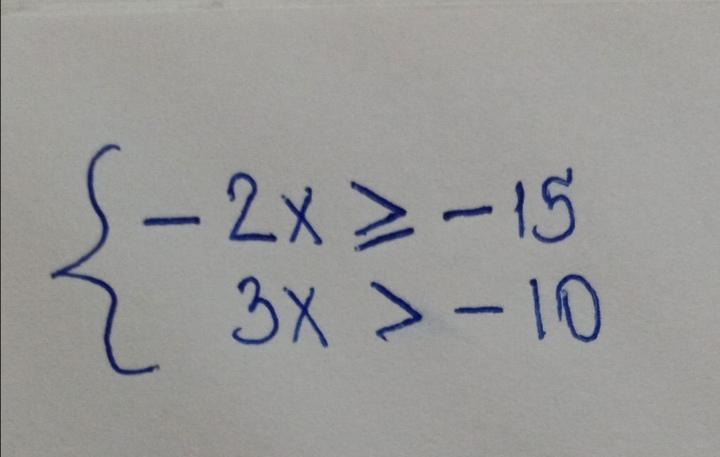 { - 2x ≥ - 15
3x > - 10